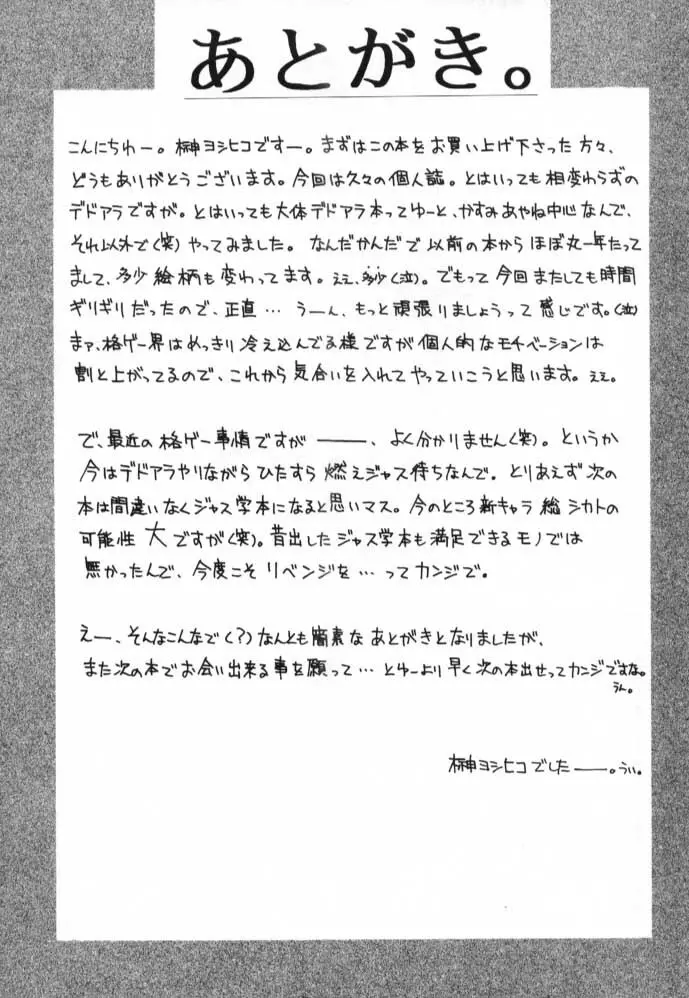 あとがき。
こんにちわー。榊ヨシヒコですー。まずはこの本をお買い上げ下さった方々、
どうもありがとうございます。今回は久々の個人誌。とはいっても相変わらずの
デドアラですが。とはいっても大体デドアラ本ってゆーと、かすみあやね中心なんで、
それ以外で(笑)やってみました。なんだかんだで以前の本からほぼ丸一年たって
まして、多少絵柄も変わってます。ええ、多少(泣)。でもって今回またしても時間
ギリギリだったので、正直…うーん、もっと頑張りましょうって感じです。(泣)
まァ、格ゲー界はめっきり冷え込んでる様ですが個人的なモチベーションは
割と上がってるので、これから気合いを入れてやっていこうと思います。ええ。
で、最近の格ゲー事情ですが――、よく分かりません(笑)。というか
今はデドアラやりながらひたすら燃えジャス待ちなんで。とりあえず次の
本は間違いなくジャス学本になると思いマス。今のところ新キャラ総シカトの
可能性大ですが(笑)。昔出したジャス学本も満足できるモノでは
無かったんで、今度こそリベンジを…ってカンジで。
えー、そんなこんなで(?)なんとも簡素なあとがきとなりましたが、
また次の本でお会い出来る事を願って…とゆーより早く次の本出せってカンジですな。
うん。
榊ヨシヒコでした――。うい。